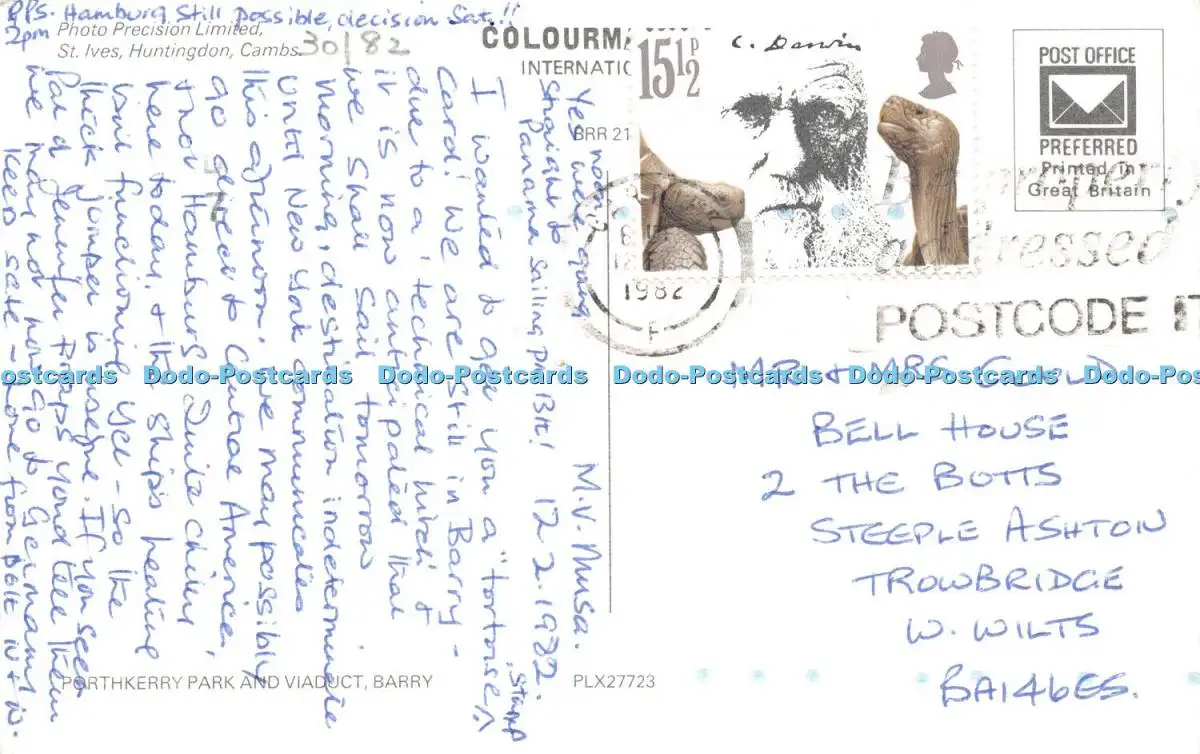 PPS. Hamburg still possible, decision Sat.!!
2pm
Photo Precision Limited,
St. Ives, Huntingdon, Cambs.
30/82
COLOURMA
INTERNATIO
BRR 21
15½P
C. Darwin
POST OFFICE
PREFERRED
Printed in
Great Britain
1982
F
addressed
POSTCODE IT
M.V. Musa.
12.2.1982.
I wanted to get you a "tortoise" stamp
card! We are still in Barry -
due to a 'technical hitch' &
it is now anticipated that
we shall sail tomorrow
morning, destination indeterminate
until New York communicates
this afternoon. We may possibly
go direct to Central America,
& not Hamburg. Quite chilly
here today, & the ship's heating
isn't functioning yet - so the
thick jumper is useful. If you see
Pat & Jennifer perhaps you'd tell them
we may not now go to Germany.
Keep safe - Love from both
Yes we're going
now
straight to
Panama sailing pm 13th!
MR & MRS GOULD
BELL HOUSE
2 THE BOTTS
STEEPLE ASHTON
TROWBRIDGE
W. WILTS
BA14 6ES.
Dodo-Postcards Dodo-Postcards Dodo-Postcards Dodo-Postcards Dodo-Postcards
PORTHKERRY PARK AND VIADUCT, BARRY
PLX27723